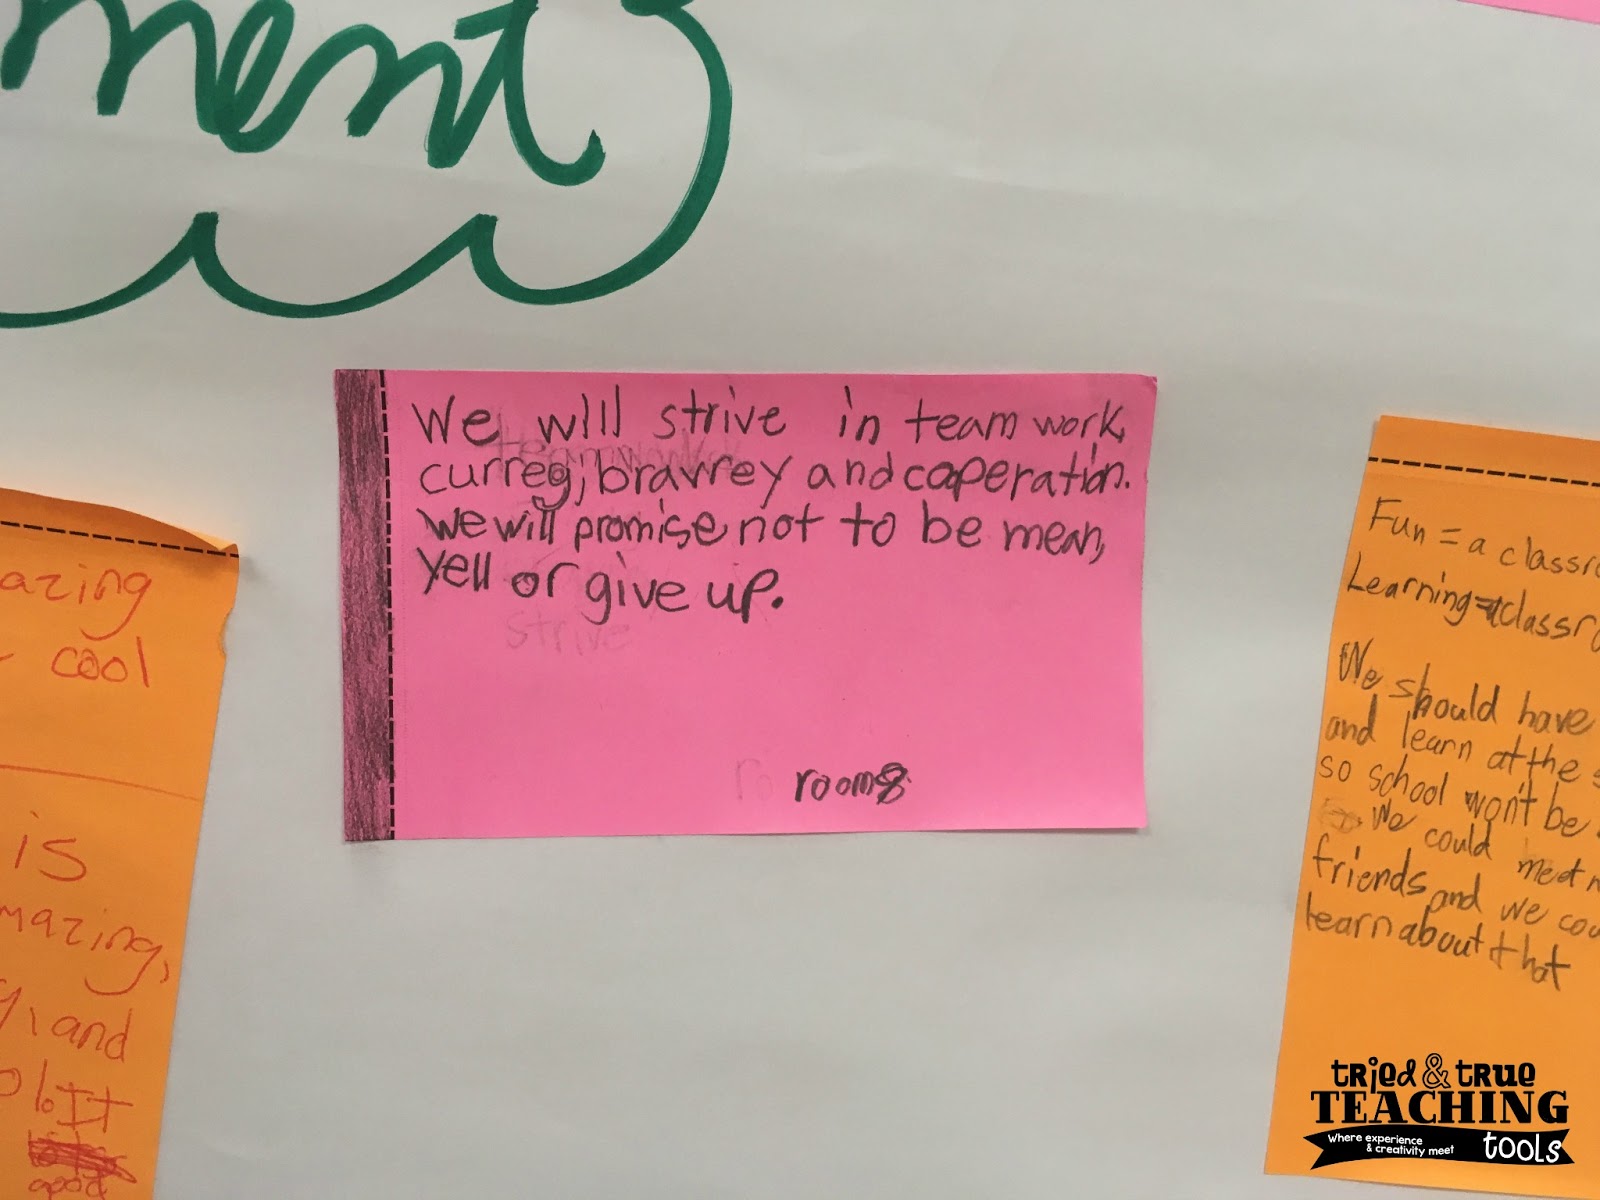 ment
We will strive in team work,
curreg, bravrey and caperation.
we will promise not to be mean,
Yell or give up.
strive
ro room 8
azing
cool
is
mazing,
and
It
good
Fun = a classro
Learning = a classro
We should have
and learn at the s
so school won't be
We could meet n
friends and we cou
learn about that
tried & true
TEACHING
where experience
& creativity meet
tools